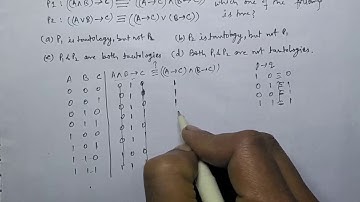 P1: ((A∧B)→C) ≡ ((A→C)∧(B→C)) which one of the following
P2: ((A∨B)→C) ≡ (A→C)∨(B→C)) is true?
(a) P1 is tautology, but not P2 (b) P2 is tautology, but not P1
(c) P1 & P2 are both tautologies (d) Both P1 & P2 are not tautologies.
A B C A∧B→C ≡ ((A→C)∧(B→C)) p→q
?
0 0 0 0 1 0 1 1 0 ≡ 0
0 0 1 0 1 1 1 0 1 ≡ 1
0 1 0 0 1 0 0 0 ≡ 1
0 1 1 0 1 1 1 1 ≡ 1
1 0 0 0 1 0
1 0 1 0 1 1
1 1 0 1 0 0
1 1 1 1 1 1